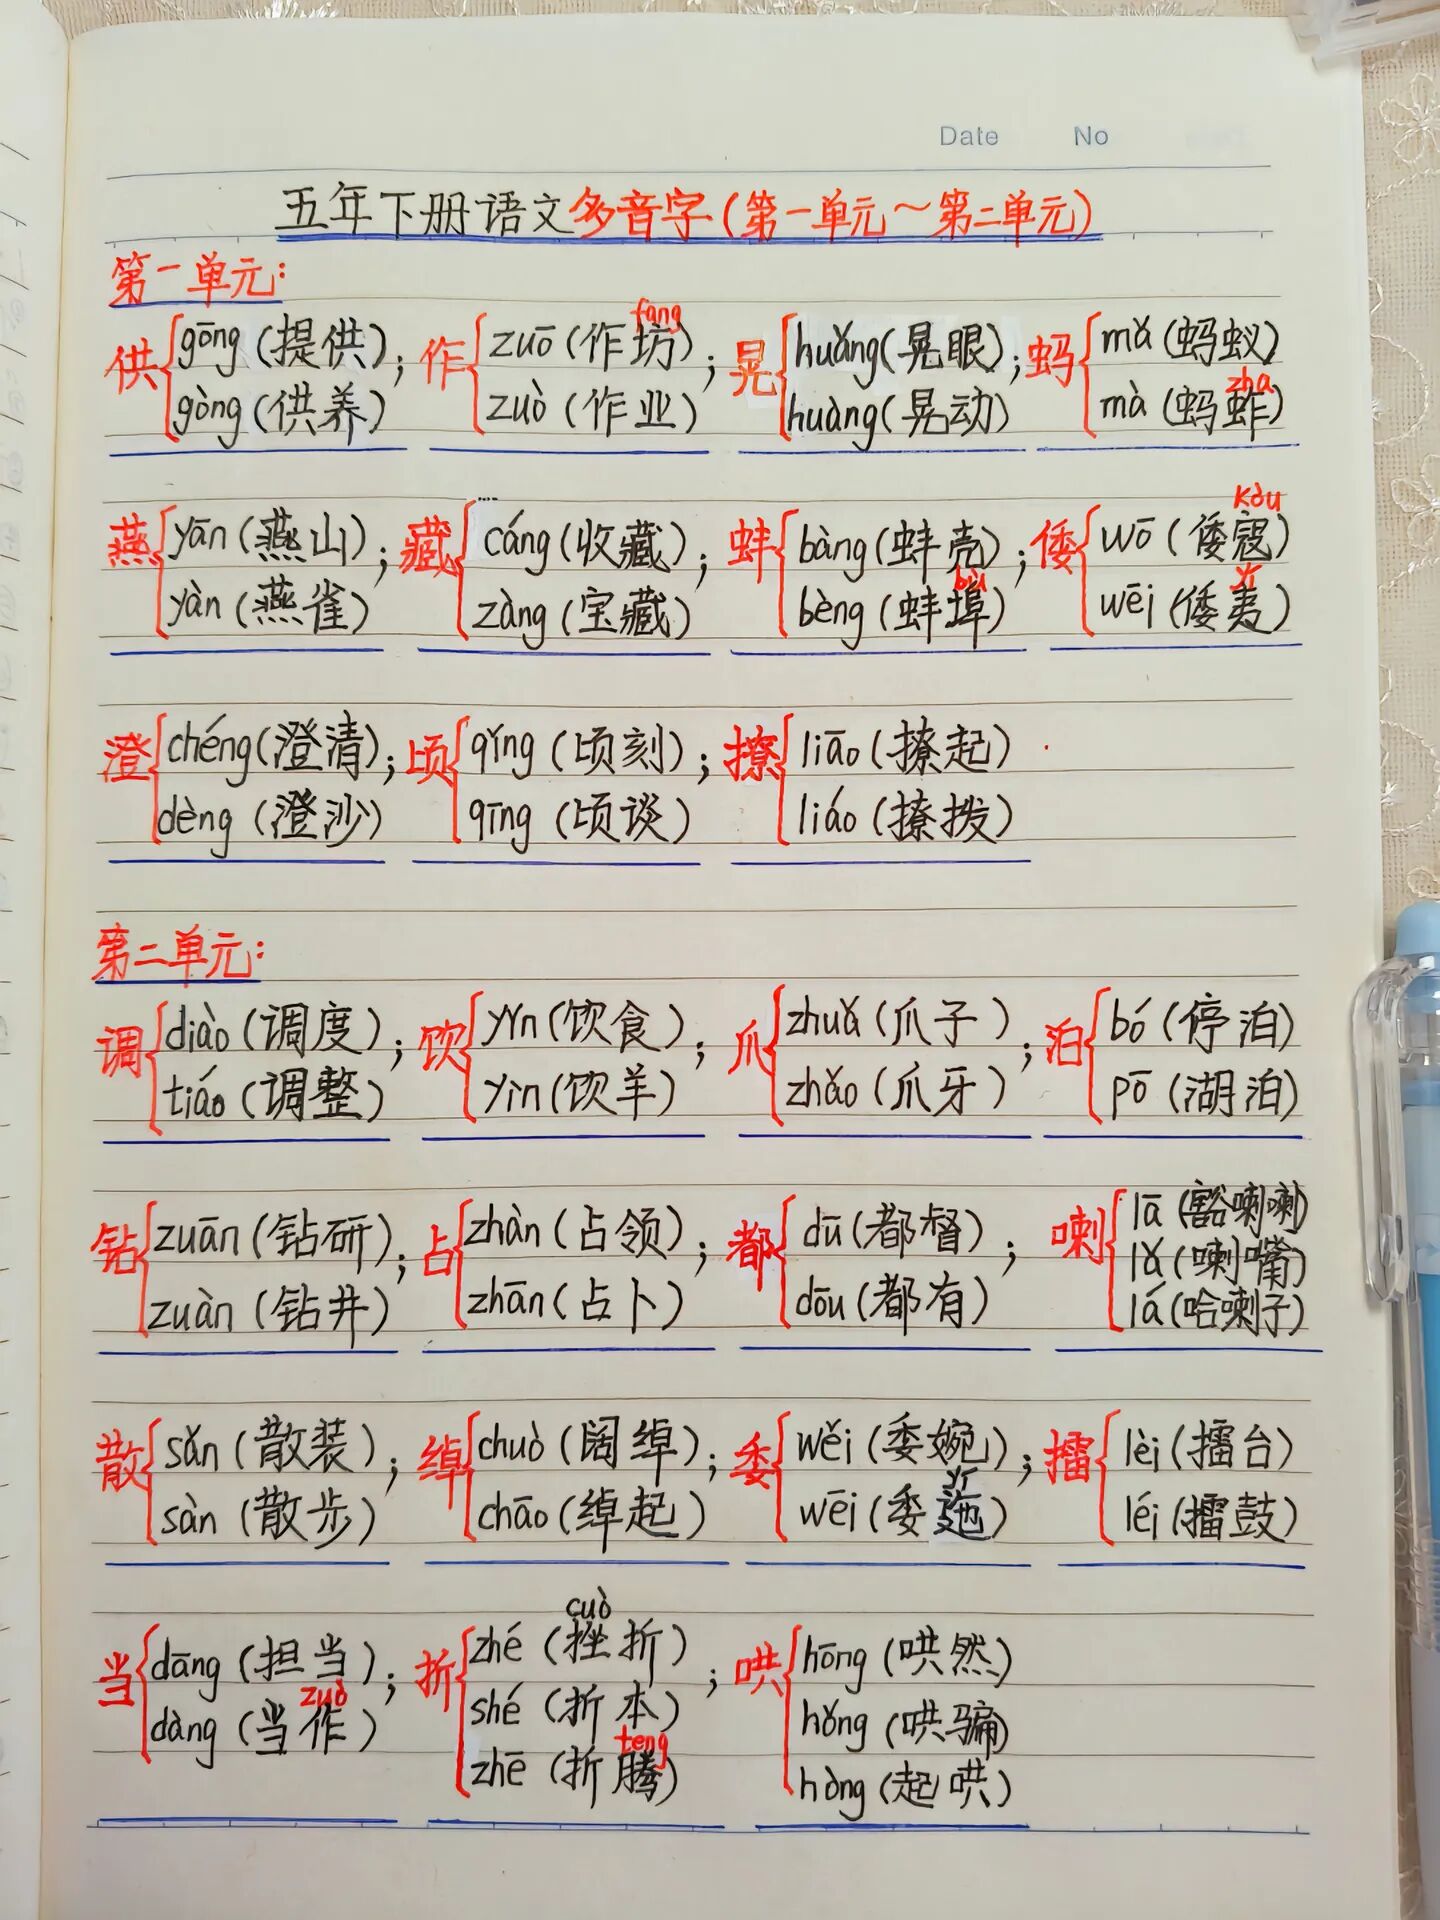 Date No
五年下册语文多音字(第一单元~第二单元)
第一单元:
供 gōng(提供) gòng(供养); 作 zuō(作坊fang) zuò(作业); 晃 huǎng(晃眼) huàng(晃动); 蚂 mǎ(蚂蚁) mà(蚂蚱zha)
燕 yān(燕山) yàn(燕雀); 藏 cáng(收藏) zàng(宝藏); 蚌 bàng(蚌壳) bèng(蚌埠bù); 倭 wō(倭寇kòu) wēi(倭夷yí)
澄 chéng(澄清) dèng(澄沙); 顷 qǐng(顷刻) qīng(顷谈); 撩 liāo(撩起) liáo(撩拨)
第二单元:
调 diào(调度) tiáo(调整); 饮 yǐn(饮食) yìn(饮羊); 爪 zhuǎ(爪子) zhǎo(爪牙); 泊 bó(停泊) pō(湖泊)
钻 zuān(钻研) zuàn(钻井); 占 zhàn(占领) zhān(占卜); 都 dū(都督) dōu(都有); 喇 lā(豁喇喇) lǎ(喇嘴) lá(哈喇子)
散 sǎn(散装) sàn(散步); 绰 chuò(阔绰) chāo(绰起); 委 wěi(委婉) wēi(委迤yí); 擂 lèi(擂台) léi(擂鼓)
当 dāng(担当) dàng(当作zuò); 折 zhé(挫cuò折) shé(折本) zhē(折腾teng); 哄 hōng(哄然) hǒng(哄骗) hòng(起哄)